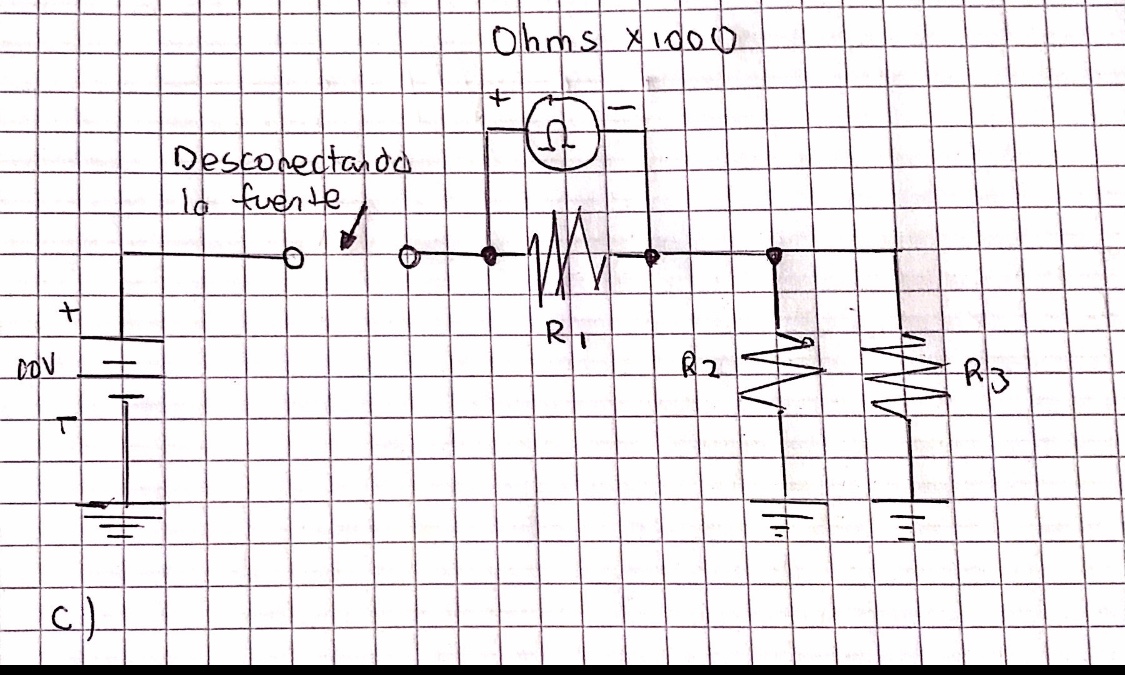 Ohms x1000
+ −
Ω
Desconectando
la fuente
R1
+
00V
−
R2
R3
c)